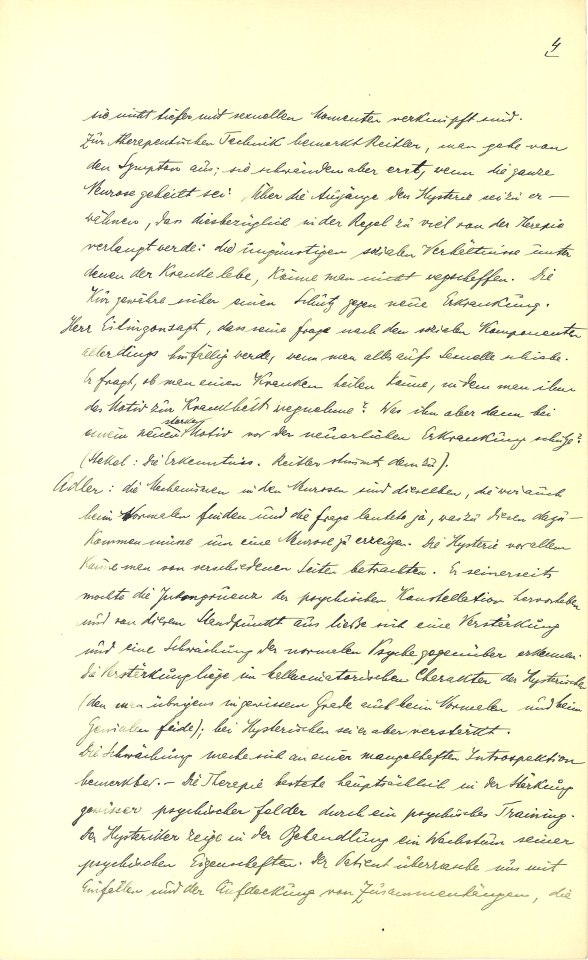 4
sie nicht tiefer mit sexuellen Momenten verknüpft sind.
Zur therapeutischen Technik bemerkt Reitler, man gehe von
den Symptom aus; sie schwänden aber erst, wenn die ganze
Neurose geheilt sei. Über die Ausgänge der Hysterie sei zu er-
wähnen, das diesbezüglich in der Regel zu viel von der Therapie
verlangt werde: die ungünstigen sozialen Verhältnisse unter
denen der Kranke lebe, könne man nicht wegschaffen. Die
Kur gewähre sicher einen Schutz gegen neue Erkrankung.
Herr Eitingon sagt, dass seine Frage nach den sozialen Komponenten
allerdings hinfällig werde, wenn man alles aufs Sexuelle schiebe.
Er fragt, ob man einen Kranken heilen könne, indem man ihm
das Motiv zur Krankheit wegnehme? Was ihm aber dann bei
einem neuen starken Motiv vor der neuerlichen Erkrankung schütze?
(Stekel: Die Erkenntniss. Reitler stimmt dem zu).
Adler: die Mechanismen in den Neurosen sind dieselben, die wir auch
beim Normalen finden und die Frage lautete ja, was zu diesen dazu-
kommen müsse um eine Neurose zu erzeugen. Die Hysterie vor allem
könne man von verschiedenen Seiten betrachten. Er seinerseits
möchte die Inkongruenz der psychischen Konstellation hervorheben
und von diesem Standpunkt aus ließe sich eine Verstärkung
und eine Schwächung der normalen Psyche gegenüber erkennen.
Die Verstärkung liege im hallucinatorischen Charakter der Hysterische
(den man übrigens in gewissem Grade auch beim Normalen und beim
Genialen finde); bei Hysterischen sei er aber verstärkt.
Die Schwächung mache sich an einer mangelhaften Introspektion
bemerkbar. - Die Therapie bestehe hauptsächlich in der Stärkung
gewisser psychischer Felder durch ein psychisches Training.
Der Hysteriker zeige in der Behandlung ein Wachstum seiner
psychischen Eigenschaften. Der Patient überrasche uns mit
Einfällen und der Aufdeckung von Zusammenhängen, die